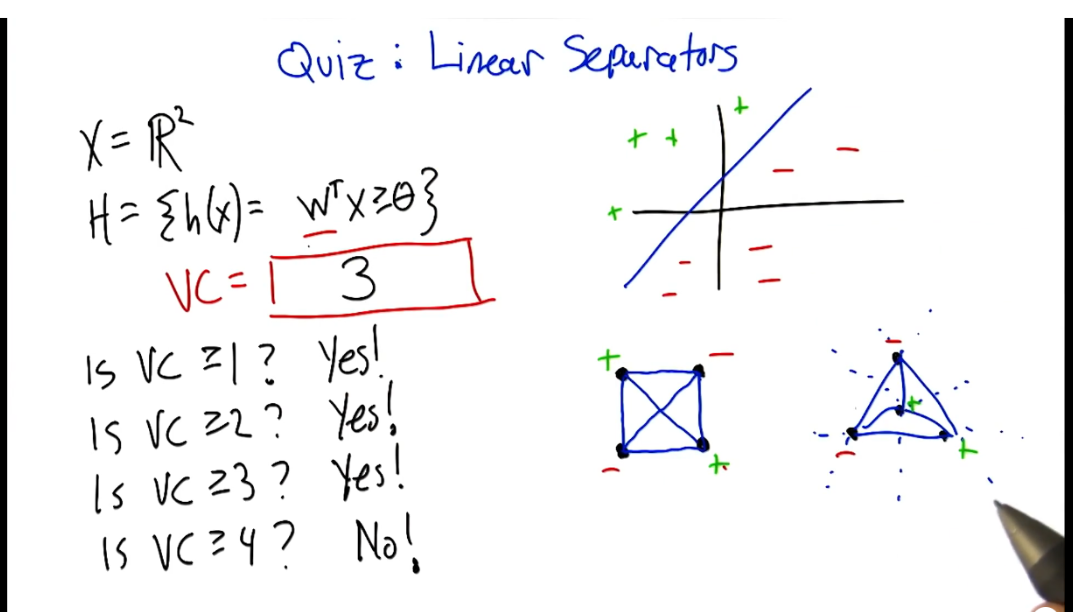 Quiz: Linear Separators
X = ℝ²
H = {h(x) = wᵀx ≥ θ}
VC = 3
Is VC ≥ 1? Yes!
Is VC ≥ 2? Yes!
Is VC ≥ 3? Yes!
Is VC ≥ 4? No!
+
+ + −
−
+
− −
− −
+ − −
+
− + − +